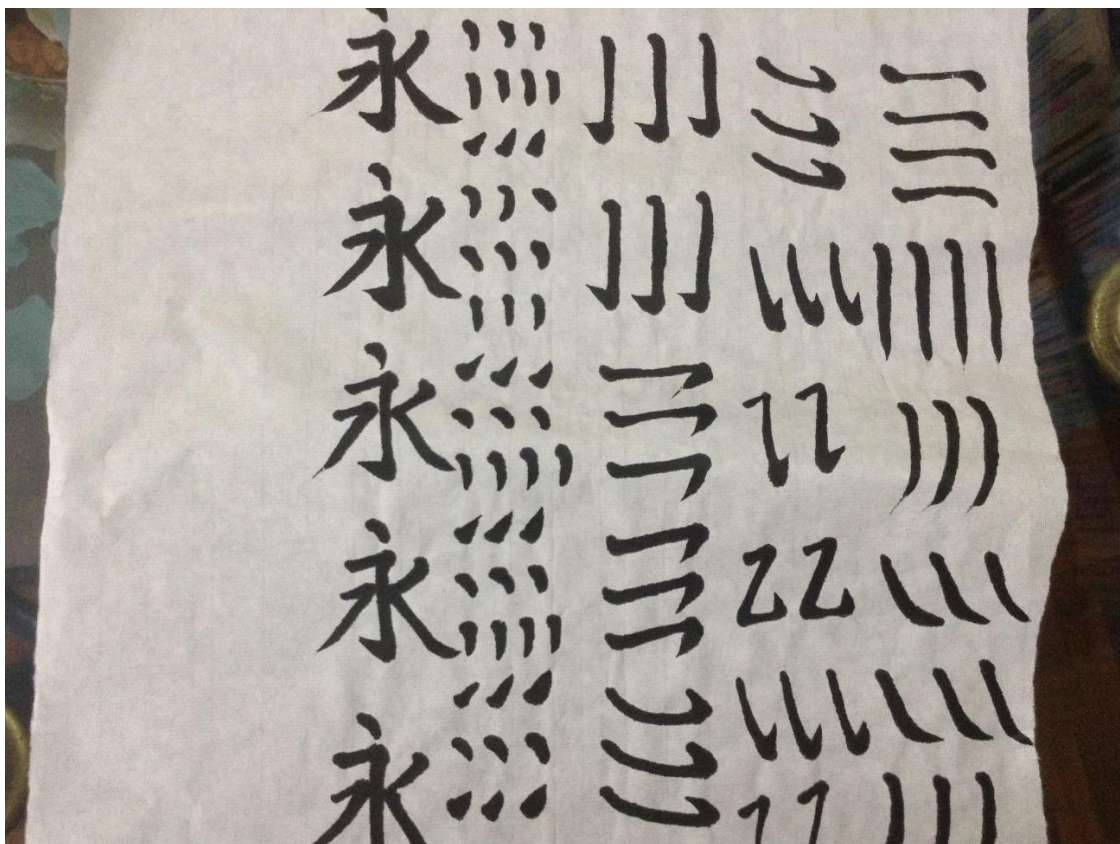 永
永
永
永
永